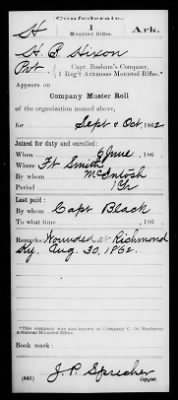 Confederate.
H 1 Ark.
Mounted Rifles.
H. B. Hixon
Pvt, Capt. Basham's Company,
1 Reg't Arkansas Mounted Rifles.*
Appears on
Company Muster Roll
of the organization named above,
for Sept & Oct, 1862
Joined for duty and enrolled:
When 9 June, 186
Where Ft Smith
By whom McIntosh
Period 1 Yr
Last paid:
By whom Capt Black
To what time , 186
Remarks: Wounded at Richmond
Ky. Aug. 30, 1862.
*This company was also known as Company C, 1st
J. P. Sprecher
Copyist.